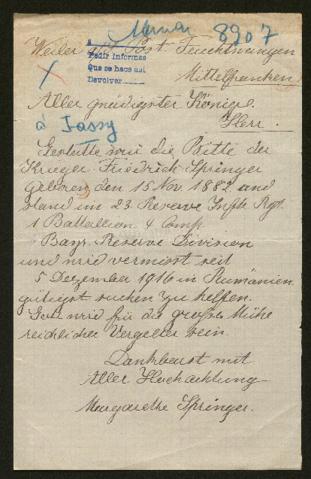 Aleman 8907
Weiler Post Feuchtwangen
A
Pedir Informes
Que se haga así
Devolver
Mittelfranken.
Aller gnädigster König
Herr.
à Jassy
Gestatte mir die Bitte der
Krieger Friedrich Springer
geboren den 15 Nov 1882 und
stand im 23 Reserve Inftr Rgt.
1 Battallion 4 Comp
Bayr. Reserve Division
und wird vermisst seit
5 Dezember 1916 in Rumänien
gütigst suchen zu helfen.
Gott wird für die große Mühe
reichlicher Vergelter sein.
Dankbarst mit
Aller Hochachtung
Margarethe Springer.